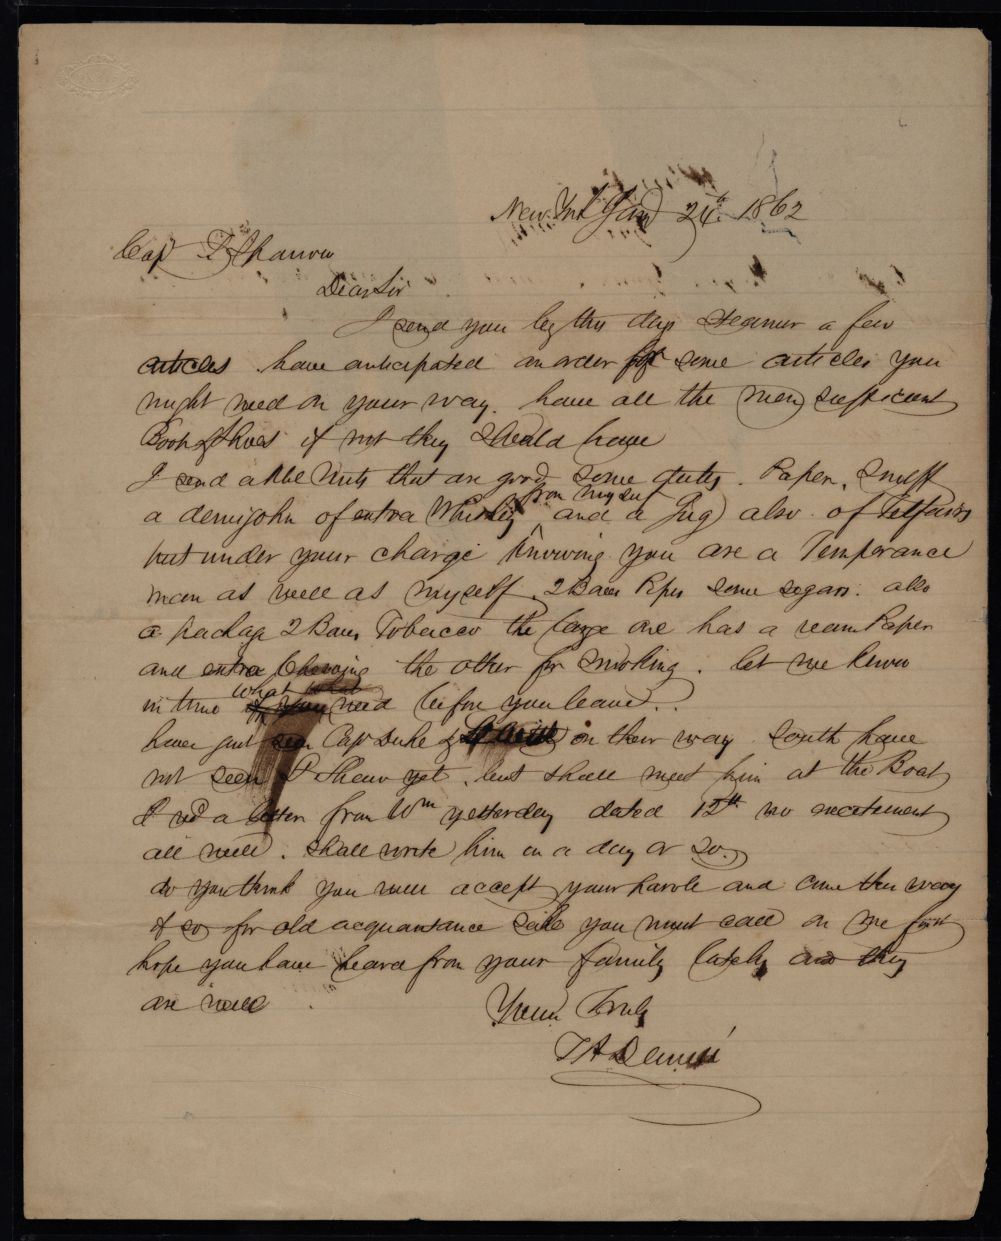 New York Jany 24th 1862
Cap
Dear Sir
I send you by this days Steamer a few
articles have anticipated an order for some articles you
might need on your way. have all the men sufficient
Boots & Shoes if not they should have
I send a Bbl Nuts that are good some Paper, Snuff
a demijohn of extra Whiskey from myself and a Jug also of Telfairs
but under your charge Knowing you are a Temperance
man as well as myself. 2 Boxes Pipes some segars. also
a package 2 Boxes Tobacco the large one has a ream Paper
and extra Chewing the other for smoking. let me know
in time what you need before you leave..
have just seen Cap Duke & on their way South have
not seen yet. but shall meet him at the Boat
I recd a letter from Wm yesterday dated 12th no excitement
all well. Shall write him in a day or so.
do you think you will accept your parole and come this way
if so for old acquaintance sake you must call on me first
hope you have heard from your family lately and they
are well
Yours Truly
T A